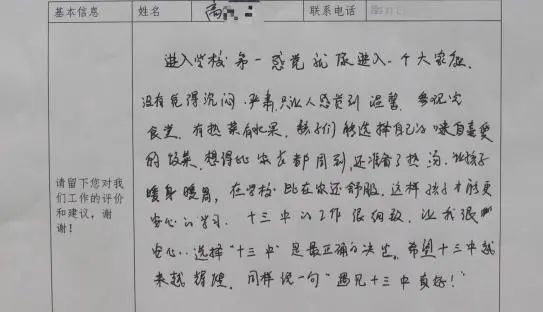 基本信息 姓名 高 联系电话
进入学校第一感觉就像进入一个大家庭,
没有觉得沉闷、严肃,只让人感觉到温馨,参观完
食堂,有热菜有水果,孩子们能选择自己口味自喜爱
的饭菜,想得比家长都周到,还准备了热汤,让孩子
暖身暖胃,在学校比在家还舒服,这样孩子才能更
安心的学习.十三中的工作很细致,让我很
安心.选择“十三中”是最正确的决定.希望十三中越
来越辉煌.同样说一句“遇见十三中真好!”
请留下您对我
们工作的评价
和建议,谢
谢!